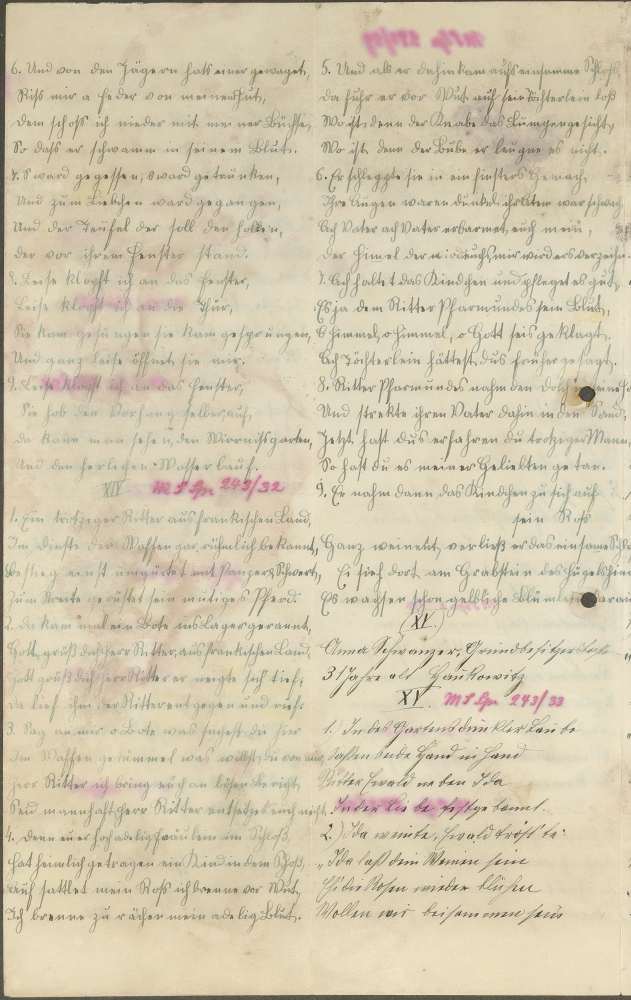 6. Und von den Jägern hats einer gewaget,
Riß mir a Feder von meinen Hut,
Dem schoß ich nieder mit meiner Büchse,
So daß er schwamm in seinem Blut.
7. S ward gegessen, s ward getrunken,
Und zum Liebchen ward gegangen,
Und der Teufel der soll den hollen,
der vor ihrem Fenster stand.
8. Leise klopft ich an das Fenster,
Leise klopft ich an die Thür,
Sie kam gesungen sie kam gesprungen,
Und ganz leise öffnet sie mir.
9. Leise klopft ich an das Fenster,
Sie hob den Vorhang selber auf,
da kann man sehen, den
Und den herlichen Wasserlauf.
XIV M S Gr. 243/32
1. Ein trotziger Ritter aus frankischen Land,
Im dienste der Waffen gar rühmlich bekannt,
Bestieg einst umgürtet mit Panzer & Schwert,
Zum Streite gerüstet sein mutiges Pferd.
2. Da kam mal ein Bote ins Lager gerannt,
Gott grüß dich Herr Ritter, aus frankischen Land,
Gott grüß dich Herr Ritter er neigte sich tief,
Da lief ihm der Ritter entgegen und rief:
3. Sag an mir o Bote was suchest du hier
Im Waffen getümmel was willst du von mir,
Herr Ritter ich bring euch an bösen Bericht,
Seid mannhaft Herr Ritter entsetzet euch nicht.
4. Denn euer hochadelig Fräulein im Schloß,
hat heimlich getragen ein Kind in dem Schoß,
Auf sattlet mein Roß ich brenne vor Wut,
Ich brenne zu rächen mein adelig Blut.
5. Und als er dahin kam aufs einsamme Schloß
da fuhr er vor Wut auf sein Töchterlein los
Wo ist denn der Knabe das Lumpengesicht,
Wo ist denn der Bube er leugne es nicht.
6. Er schleppte sie in ein finsters Gemach,
Ihre Augen waren dunkel ihr Atem war schwach
Ach Vater ach Vater erbarmet euch mein,
der Himel der
7. Ach haltet das Kindchen und pfleget es gut,
Es ja dem Ritter Pharmundes sein Blut,
O Himmel, o Himmel, o Gott seis geklagt,
Ach Töchterlein hättest dus früher gesagt.
8. Ritter Pharmundes nahm den Dolch
Und strekte ihren Vater dahin in den Sand,
Jetzt hast dus erfahren du trotziger Mann,
So hast du es meiner Geliebten getan.
9. Er nahm dann das Kindchen zu sich auf
sein Roß
Ganz weinend verließ er das einsame
Ei sieh dort am Grabstein des Hügels
Es wachsen schon gelbliche Blümlein
(XV.)
Anna Schwanzer, Grundbesitzers
31 Jahre alt Haukowitz
XV. M S Gr. 243/33
1. In des Gartens dunkler Laube
saßen beide Hand in Hand
Ritter Ewald neben Ida
In der Liebe festgebannt.
2. Ida weinte, Ewald tröst'te:
"Ida laß dein Weinen sein
Eh die Rosen wieder blühen
Wollen wir beisammen sein